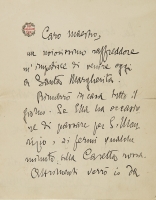 Caro Maestro,
un noiosissimo raffreddore
m'impedisce di venire oggi
a Santa Margherita.
Rimarrò in casa tutto il
giorno. Se Ella ha occasio
ne di passare per S. Mi
si fermi qualche
minuto alla Casetta rossa.
Altrimenti verrò io da